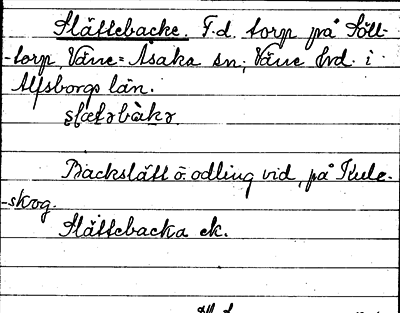 Slättebacke. F.d. torp på Söll-
-torp, Väne-Åsaka sn, Väne hd. i
Älfsborgs län.
slætəbàkə
Backslätt o. odling vid, på Kule-
-skog.
Slättebacka ek.